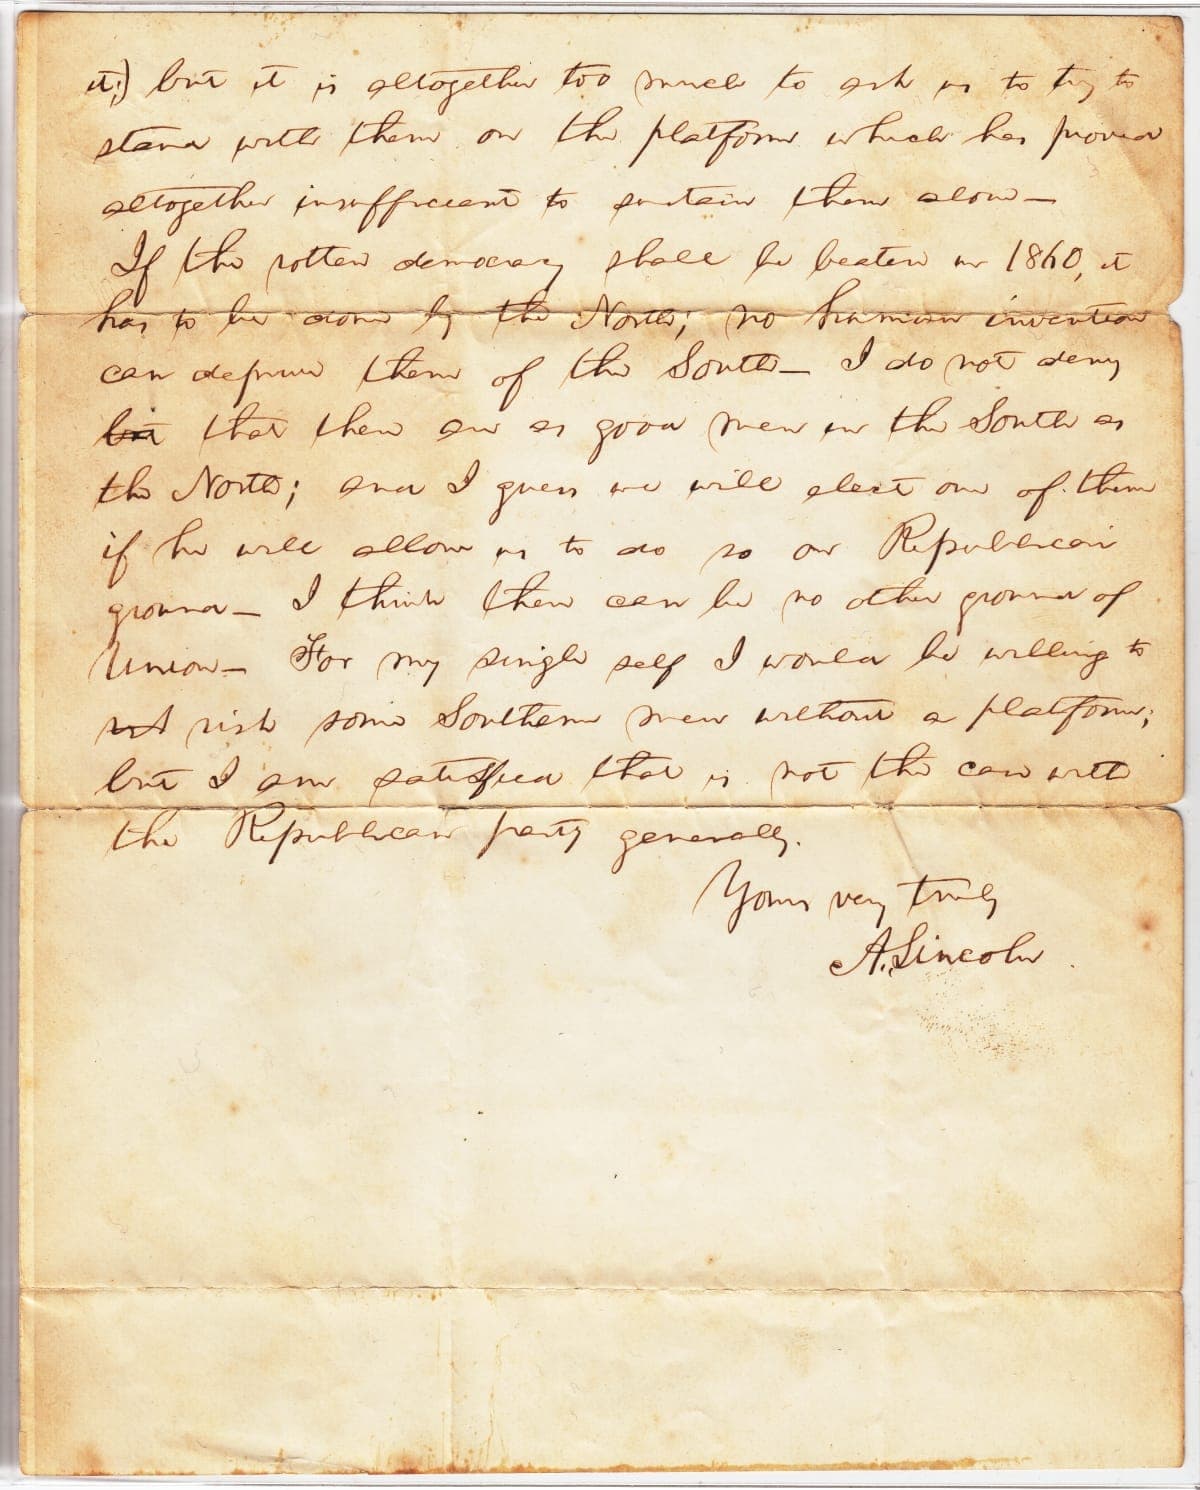 it;) but it is altogether too much to ask us to try to
stand with them on the platform which has proved
altogether insufficient to sustain them alone—
If the rotten democracy shall be beaten in 1860, it
has to be done by the North; no human invention
can deprive them of the South— I do not deny
but that there are as good men in the South as
the North; and I guess we will elect one of them
if he will allow us to do so on Republican
ground— I think there can be no other ground of
Union— For my single self I would be willing to
risk some Southern men without a platform;
but I am satisfied that is not the case with
the Republican party generally.
Yours very truly
A. Lincoln